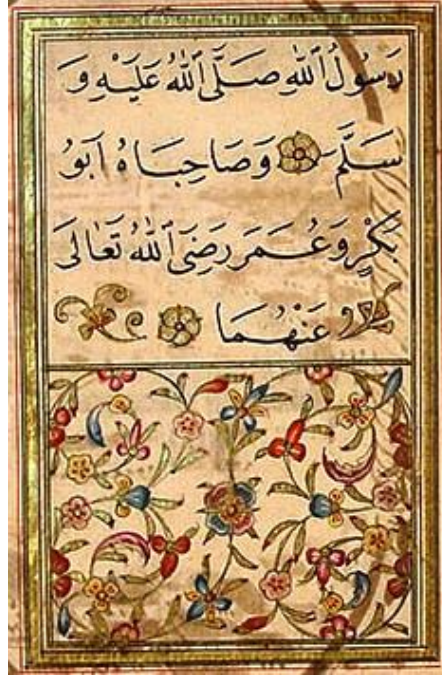 رَسُولُ ٱللّٰهِ صَلَّى ٱللّٰهُ عَلَيْهِ وَ
سَلَّمَ وَصَاحِبَاهُ اَبُو
بَكْرٍ وَعُمَرَ رَضِيَ ٱللّٰهُ تَعَالٰى
عَنْهُمَا